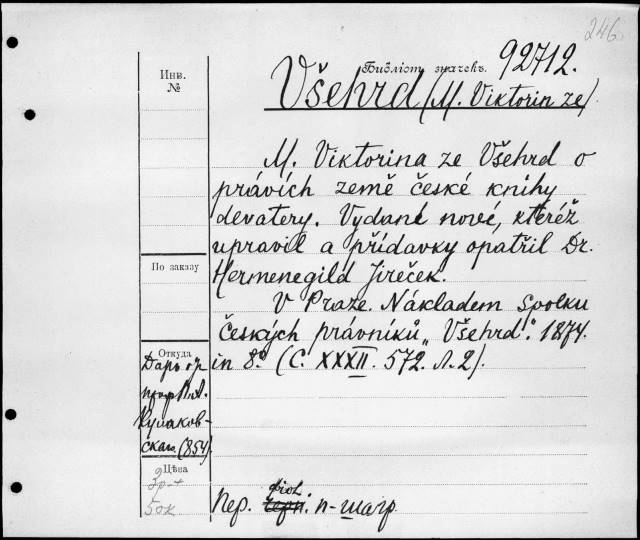 246.
Библіот. значекъ. 92712.
Инв.
№
Všehrd (M. Viktorin ze)
M. Viktorina ze Všehrd o
právích země české knihy
devatery. Vydané nové, kteréž
upravil a přídavky opatřil Dr.
Hermenegild Jireček.
V Praze. Nákladem spolku
českých právníků „Všehrd". 1874.
in 8º. (С. XXXII. 572. Л. 2).
По заказу
Откуда
Даръ от
проф. Пл. А.
Кулаков-
скаго (854)
Цѣва
3р-+
50к
Пер. фіол. п-шагр.